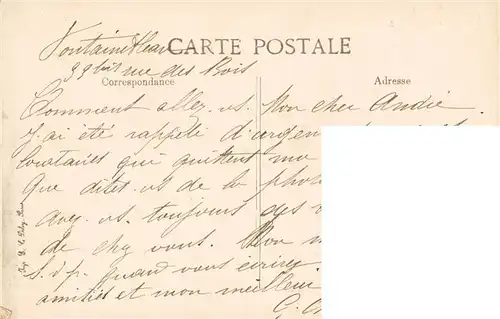 Fontainebleau
CARTE POSTALE
39 bis rue des Bois
Correspondance
Adresse
Comment allez-vs. Mon cher André
J'ai été rappelé d'urgence
qui quittent ma
Que dites-vs de la photo
avez-vs. toujours des
de chez vous. Mon
S.v.p. quand vous écrirez
amitiés et mon meilleur
G.